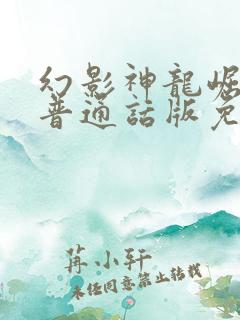 幻影神龍崛
普通話版免
苒小轩
未经同意禁止转载